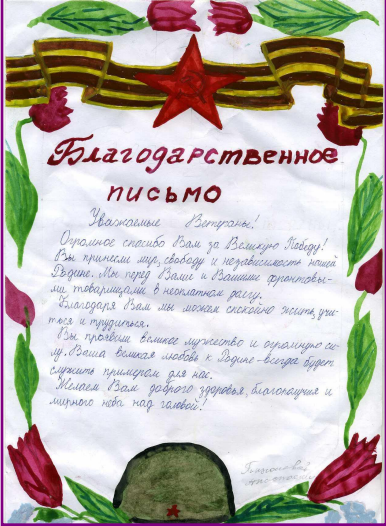 Благодарственное
письмо
Уважаемые Ветераны!
Огромное спасибо Вам за Великую Победу!
Вы принесли мир, свободу и независимость нашей
Родине. Мы перед Вами и Вашими фронтовы-
ми товарищами в неоплатном долгу.
Благодаря Вам мы можем спокойно жить, учи-
ться и трудиться.
Вы проявили великое мужество и огромную си-
лу. Ваша великая любовь к Родине - всегда будет
служить примером для нас.
Желаем Вам доброго здоровья, благополучия и
мирного неба над головой!